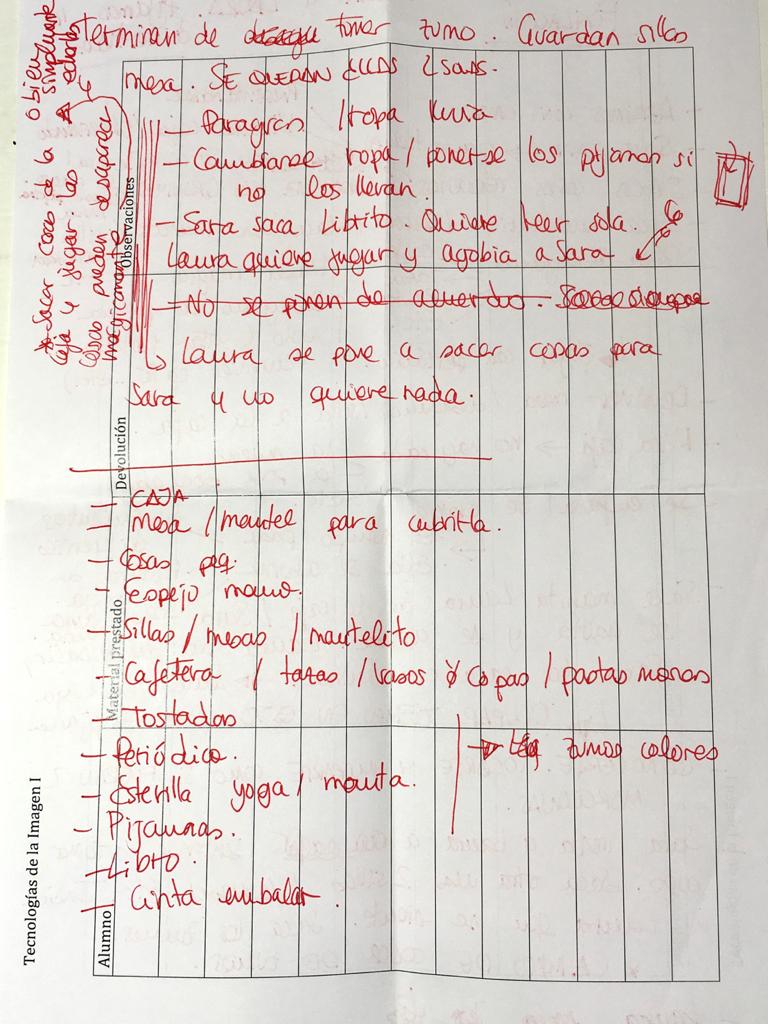 Terminan de tomar zumo. Guardan sillas
mesa. SE QUEDAN ELLAS 2 SOLAS.
- Paraguas / ropa lluvia
- Cambiarse ropa / ponerse los pijamas si
no los llevan.
- Sara saca librito. Quiere leer sola.
Laura quiere jugar y agobia a Sara
- No se ponen de acuerdo.
Laura se pone a sacar copas para
Sara y no quiere nada.
- CAJA
- Mesa / mantel para cubrirla.
- Cosas peq.
- Espejo mano.
- Sillas / mesas / mantelito
- Cafetera / tazas / vasos y copas / pastas
- Tostadas
- Periódico.
zumos colores
- Esterilla yoga / manta.
- Pijamas.
- Libro.
- Cinta embalar.
* Sacar cosas de la
caja y jugar. Las
cosas pueden desaparecer
mágicamente
o bien
simplemente
Observaciones
Devolución
Material prestado
Alumno
Tecnologías de la Imagen I